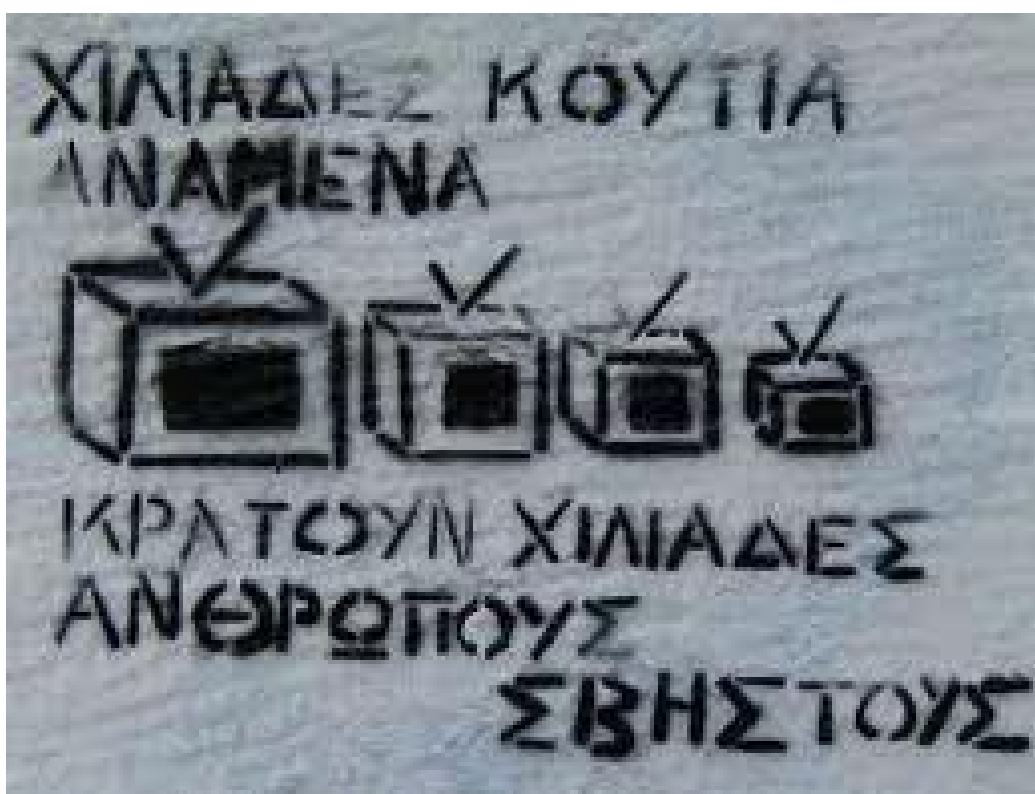 ΧΙΛΙΑΔΕΣ ΚΟΥΤΙΑ
ΑΝΑΜΕΝΑ
ΚΡΑΤΟΥΝ ΧΙΛΙΑΔΕΣ
ΑΝΘΡΩΠΟΥΣ
ΣΒΗΣΤΟΥΣ